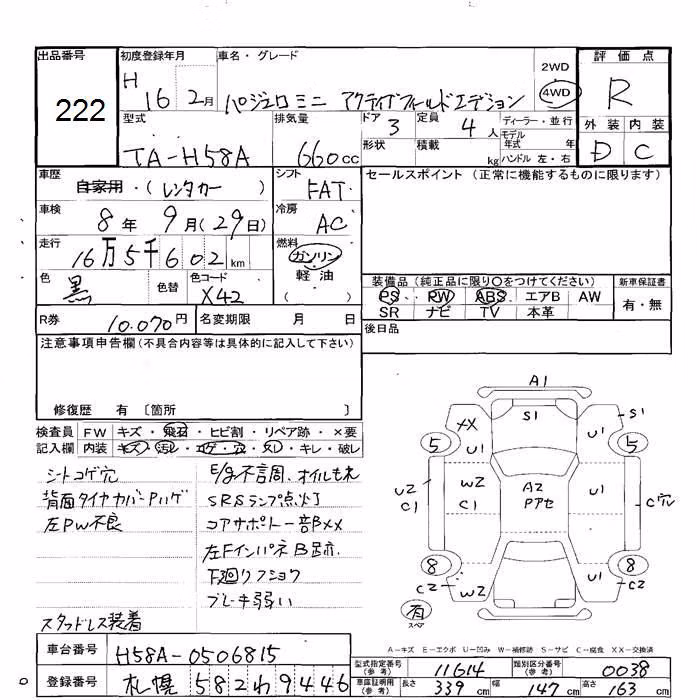 出品番号
222
初度登録年月
H 16 2月
車名・グレード
パジェロミニ アクティブフィールドエディション
2WD
4WD
評価点
R
外装 内装
D C
型式
TA-H58A
排気量
660cc
ドア 3
定員 4人
形状
積載 kg
ディーラー・並行
モデル
年式 年
ハンドル 左・右
車歴
自家用・(レンタカー)
シフト
FAT
セールスポイント (正常に機能するものに限ります)
車検
8年 9月(29日)
冷房
AC
走行
16万5千602km
燃料
ガソリン
軽油
( )
色
黒
色替
色コード
X42
装備品(純正品に限り○をつけてください)
PS PW ABS エアB AW
SR ナビ TV 本革
新車保証書
有・無
R券 10.070円
名変期限 月 日
後日品
注意事項申告欄(不具合内容等は具体的に記入して下さい)
修復歴 有〔箇所 〕
検査員 FW キズ・飛石・ヒビ割・リペア跡・×要
記入欄 内装 キズ・汚レ・コゲ・穴・スレ・キレ・破レ
シートコゲ穴
背面タイヤカバーPハゲ
左PW不良
スタッドレス装着
E/g不言周、オイルもれ
SRSランプ点灯
コアサポート一部XX
左FインパネB跡
下廻りフショク
ブレーキ弱い
A1
S1
XX
U1
S1
U1
5
5
U2
C1
W2
C1
A2
Pアセ
U1
C穴
8
8
C2
W2
U1
C2
有
スペア
A-キズ E-エクボ U-凹み W-補修跡 S-サビ C-腐食 XX-交換済
車台番号
H58A-0506815
登録番号
札幌 582わ9446
型式指定番号
(参考)
11614
類別区分番号
(参考)
0038
車庫証明用
(参考)
長さ 339cm 幅 147cm 高さ 163cm